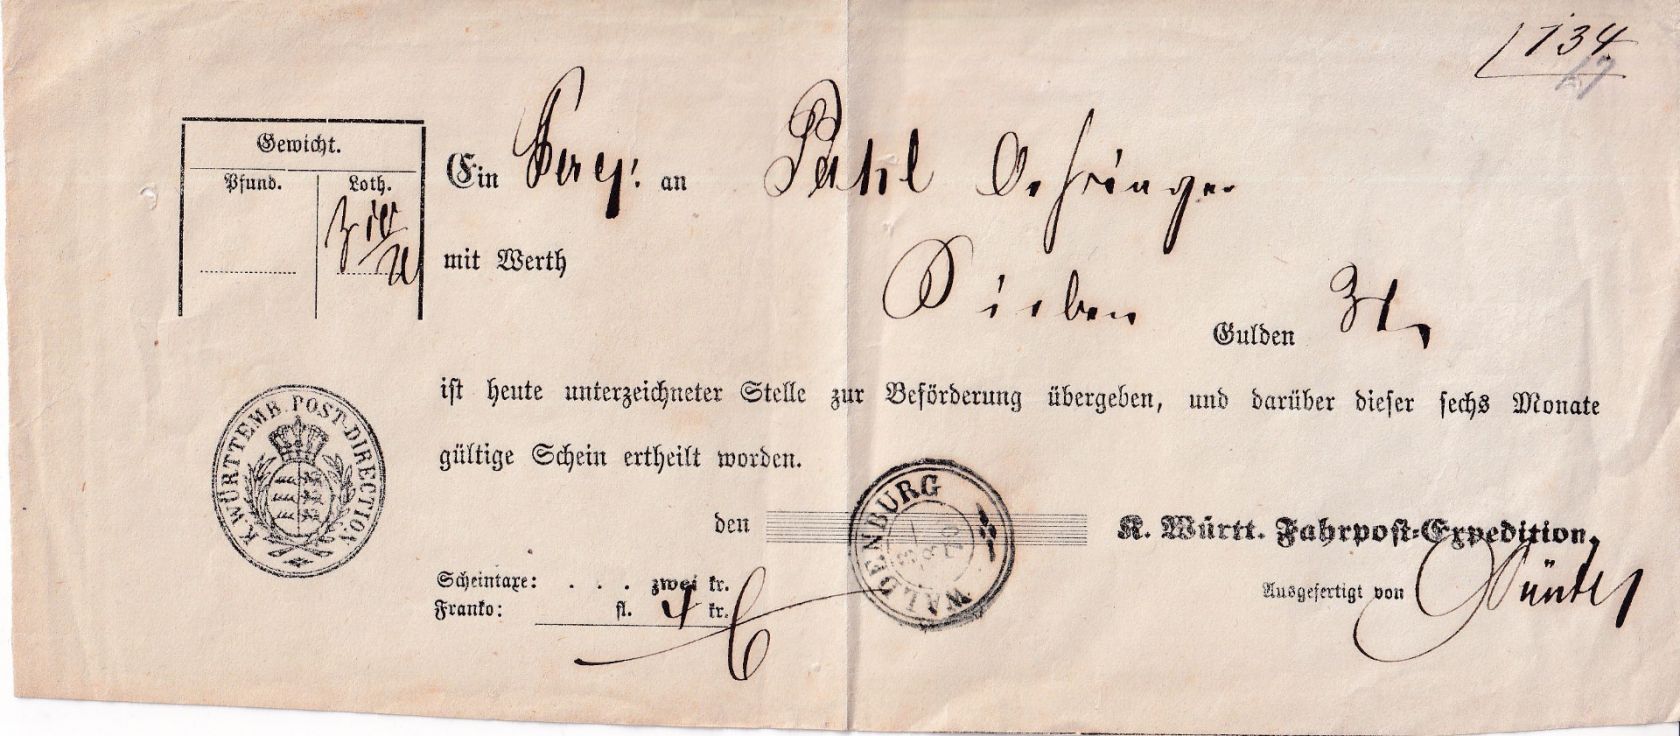 134
Gewicht.
Pfund. Loth.
Ein an Pahl Oehringen
mit Werth
Sieben Gulden
ist heute unterzeichneter Stelle zur Beförderung übergeben, und darüber dieser sechs Monate
gültige Schein ertheilt worden.
K. WÜRTTEMB. POST-DIRECTION
den K. Württ. Fahrpost-Expedition.
WALDENBURG
Ausgefertigt von
Scheintaxe: . . . zwei kr.
Franko: fl. 4 kr.
6